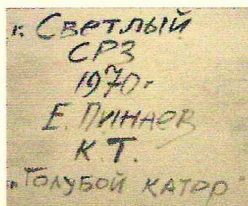 г. Светлый
СРЗ
1970г
Е. Пинаев
К.Т.
"Голубой катер"